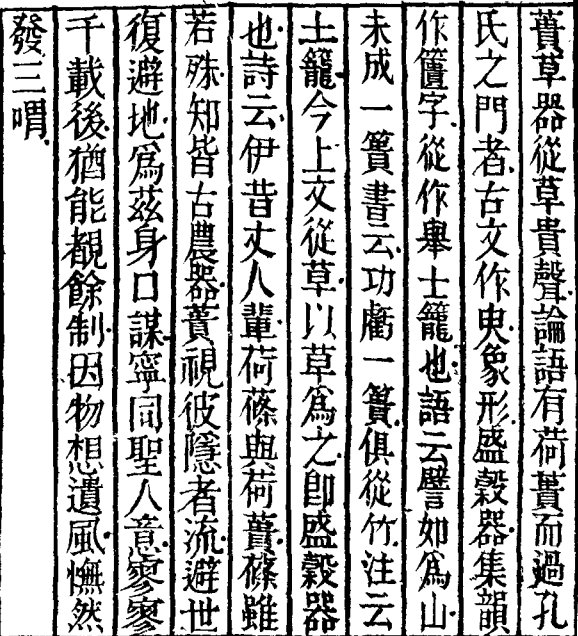 蕢草器從草貴聲論語有荷蕢而過孔
氏之門者古文作臾象形盛穀器集韻
作簣字從作舉土籠也語云譬如爲山
未成一簣書云功虧一簣俱從竹注云
土籠今上文從草以草爲之卽盛穀器
也詩云伊昔丈人輩荷蓧與荷蕢蓧雖
若殊知皆古農器蕢視彼隱者流避世
復避地爲茲身口謀寧同聖人意寥寥
千載後猶能覩餘制因物想遺風憮然
發三喟